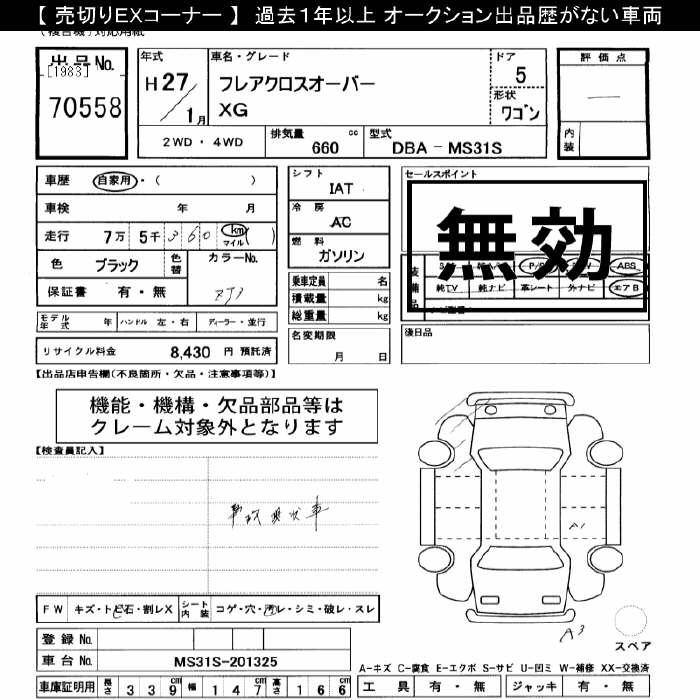 【 売切りEXコーナー 】 過去1年以上 オークション出品歴がない車両
出品No.
[1983]
70558
年式
H 27
/ 1 月
車名・グレード
フレアクロスオーバー
XG
ドア
5
形状
ワゴン
評価点
—
内装
2WD・4WD
排気量 660 cc
型式 DBA－MS31S
車歴 自家用・( )
車検 年 月
走行 7万 5千 3 6 0 km マイル ( )
色 ブラック 色替 カラーNo.
保証書 有・無 ZJ3
モデル年式 年 ハンドル 左・右 ディーラー・並行
リサイクル料金 8,430 円 預託済
シフト
IAT
冷房
AC
燃料
ガソリン
乗車定員 名
積載量 kg
総重量 kg
名変期限
月 日
セールスポイント
無効
装備品
ABS
純TV 純ナビ 革シート 外ナビ エアB
後日品
【出品店申告欄(不良箇所・欠品・注意事項等)】
機能・機構・欠品部品等は
クレーム対象外となります
【検査員記入】
事故現状車
A1
A3
スペア
FW キズ・トビ石・割レX シート内装 コゲ・穴・汚レ・シミ・破レ・スレ
登録No.
車台No. MS31S-201325
車庫証明用 長さ 3 3 9 cm 幅 1 4 7 cm 高さ 1 6 6 cm
A-キズ C-腐食 E-エクボ S-サビ U-凹ミ W-補修 XX-交換済
工具 有・無 ジャッキ 有・無